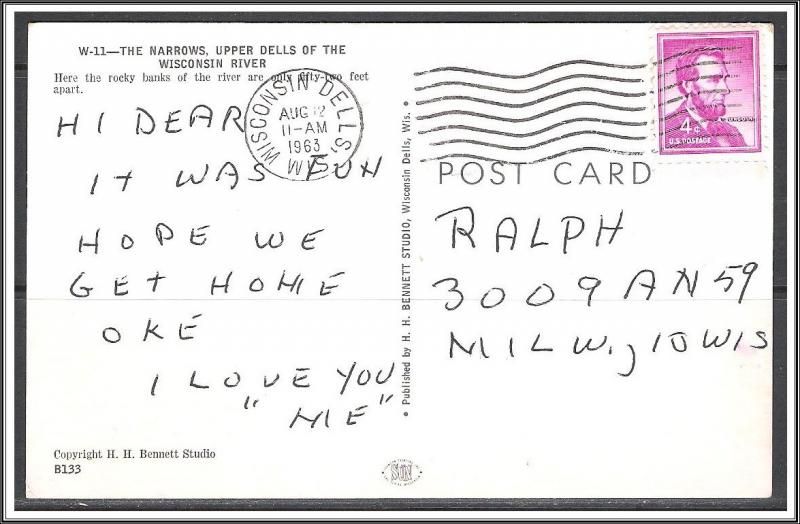 W-11—THE NARROWS, UPPER DELLS OF THE
WISCONSIN RIVER
Here the rocky banks of the river are only fifty-two feet
apart.
HI DEAR
IT WAS FUN
HOPE WE
GET HOME
OKE
I LOVE YOU
"ME"
Copyright H. H. Bennett Studio
B133
• Published by H. H. BENNETT STUDIO, Wisconsin Dells, Wis. •
WISCONSIN DELLS, WIS.
AUG 12
11-AM
1963
LINCOLN
4¢
U.S. POSTAGE
POST CARD
RALPH
3009 A N 59
MILW, 10 WIS
SUN